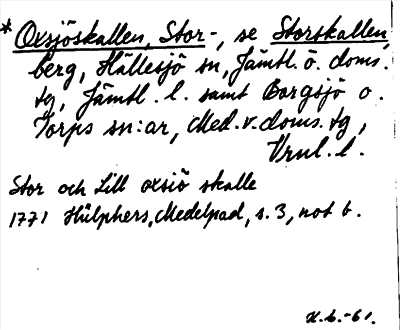 * Oxsjöskallen, Stor-, se Storskallen,
berg, Hällesjö sn, Jämtl. ö. doms.
tg, Jämtl. l. samt Borgsjö o.
Torps sn:ar, Med. v. doms. tg,
Vrnl. l.
Stor och Lill oxsiö skalle
1771 Hülphers, Medelpad, s. 3, not b.
H.L.-61.